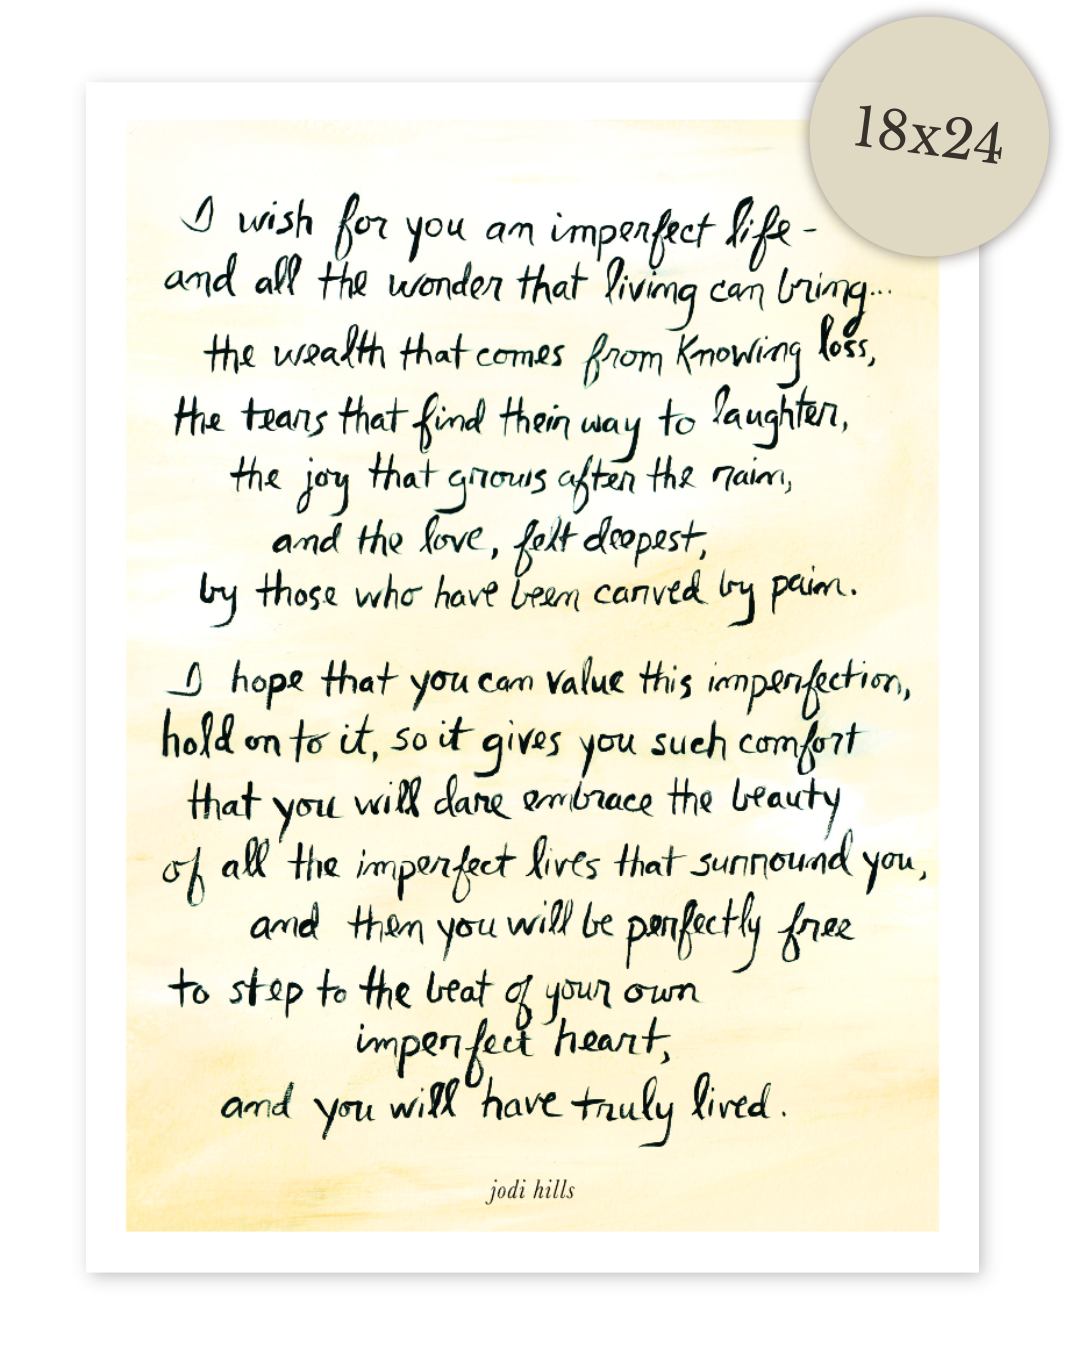 18x24
I wish for you an imperfect life -
and all the wonder that living can bring...
the wealth that comes from knowing loss,
the tears that find their way to laughter,
the joy that grows after the rain,
and the love, felt deepest,
by those who have been carved by pain.
I hope that you can value this imperfection,
hold on to it, so it gives you such comfort
that you will dare embrace the beauty
of all the imperfect lives that surround you,
and then you will be perfectly free
to step to the beat of your own
imperfect heart,
and you will have truly lived.
jodi hills